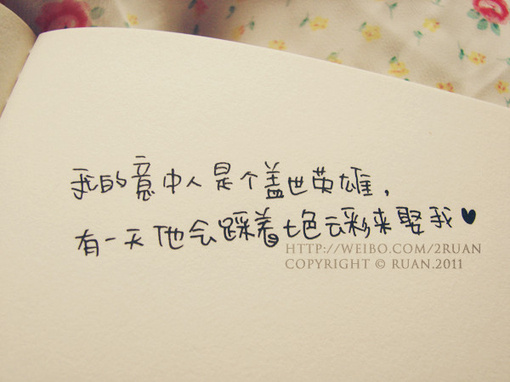 我的意中人是个盖世英雄，
有一天他会踩着七色云彩来娶我♥
HTTP://WEIBO.COM/2RUAN
COPYRIGHT © RUAN.2011